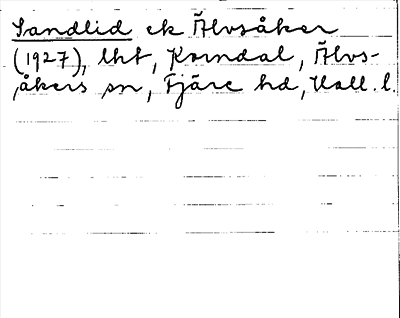 Sandlid ek Älvsåker
(1927), lht, Korndal, Älvs-
åkers sn, Fjäre hd, Hall. l.